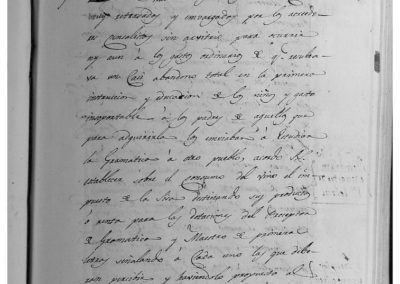 muy retrazados y embargados por los acreedo-
res censalistas sin arvitrio para ocurrir
ny aun à los gastos ordinarios de q.e resulta-
va un Casi abandono total en la primera
instruccion y educacion de los niños y gasto
insoportable à los padres de aquellos que
para adquirirla los enviaban à estudiar
la Gramatica à otro pueblo, acordó
establecer sobre el consumo del vino el im-
puesto de la Sisa destinando sus productos
ò renta para las dotaciones del Preceptor
de Gramatica y Maestro de primeras
letras señalando à Cada uno lo que debe-
ran percibir y haviendolo propuesto al